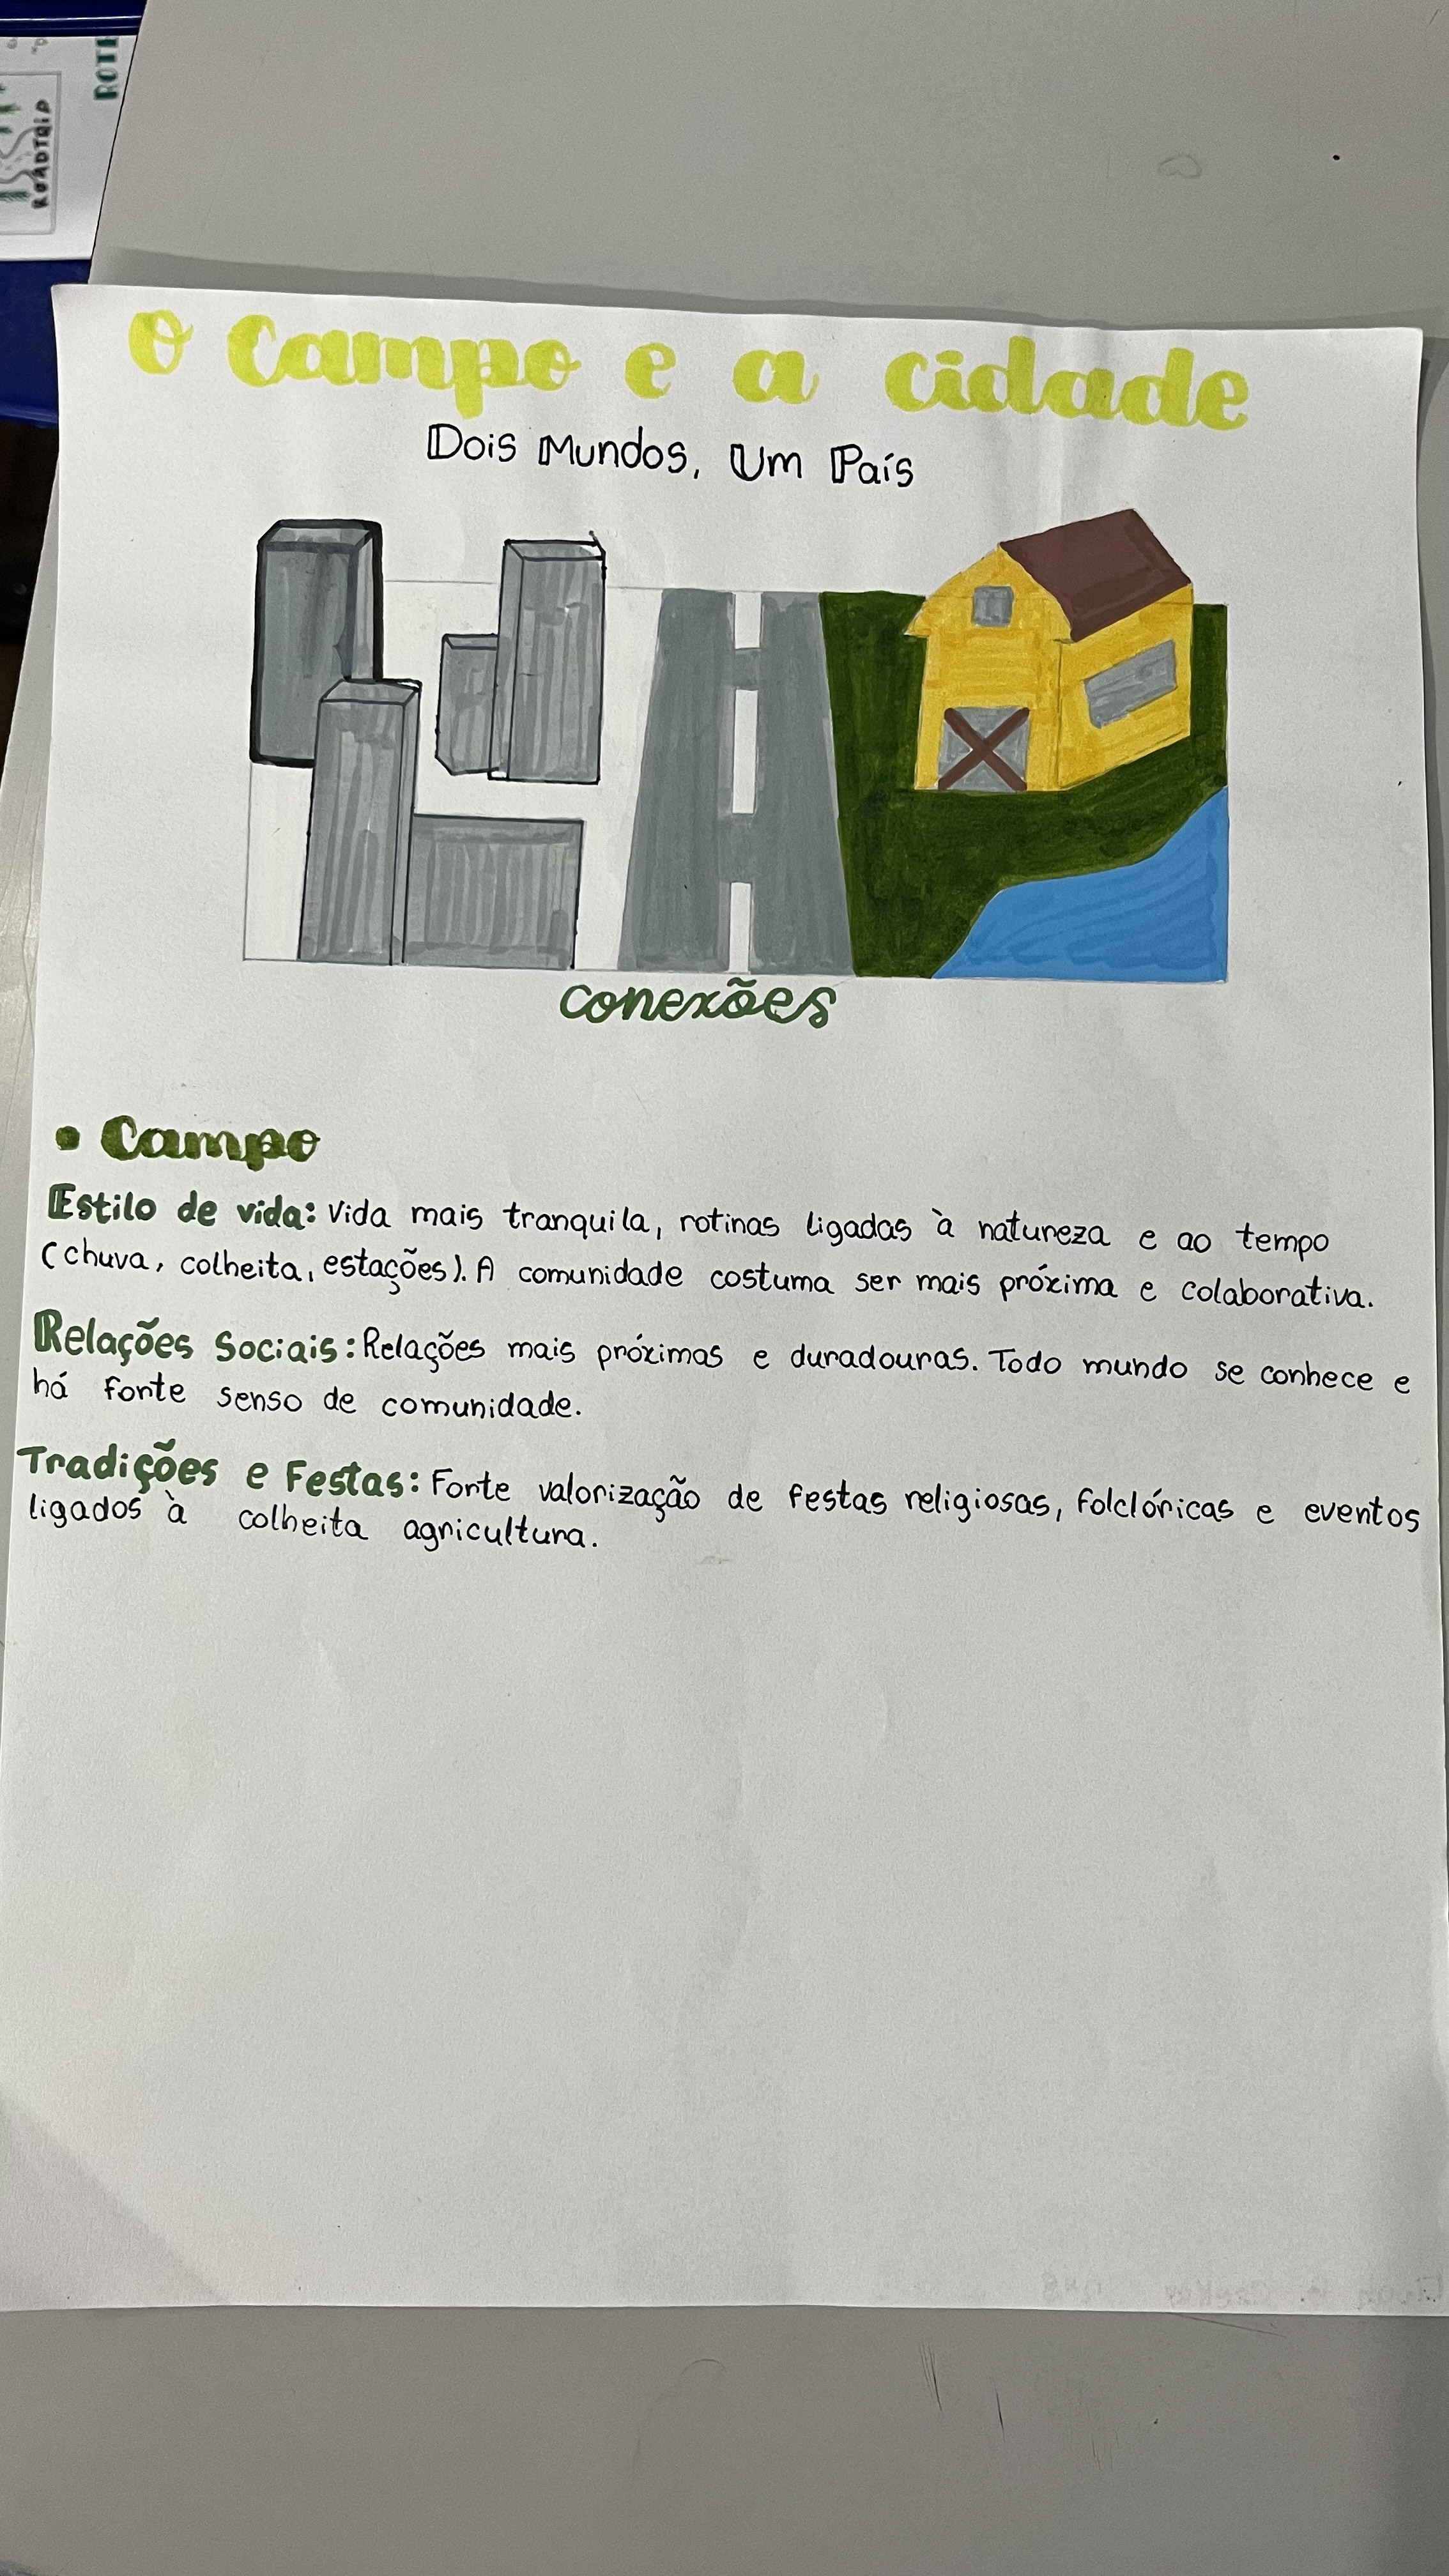 ROADTRIP
ROTE
O Campo e a cidade
Dois Mundos, Um País
conexões
• Campo
Estilo de vida: Vida mais tranquila, rotinas ligadas à natureza e ao tempo
(chuva, colheita, estações). A comunidade costuma ser mais próxima e colaborativa.
Relações Sociais: Relações mais próximas e duradouras. Todo mundo se conhece e
há forte senso de comunidade.
Tradições e Festas: Forte valorização de festas religiosas, folclóricas e eventos
ligados à colheita agricultura.